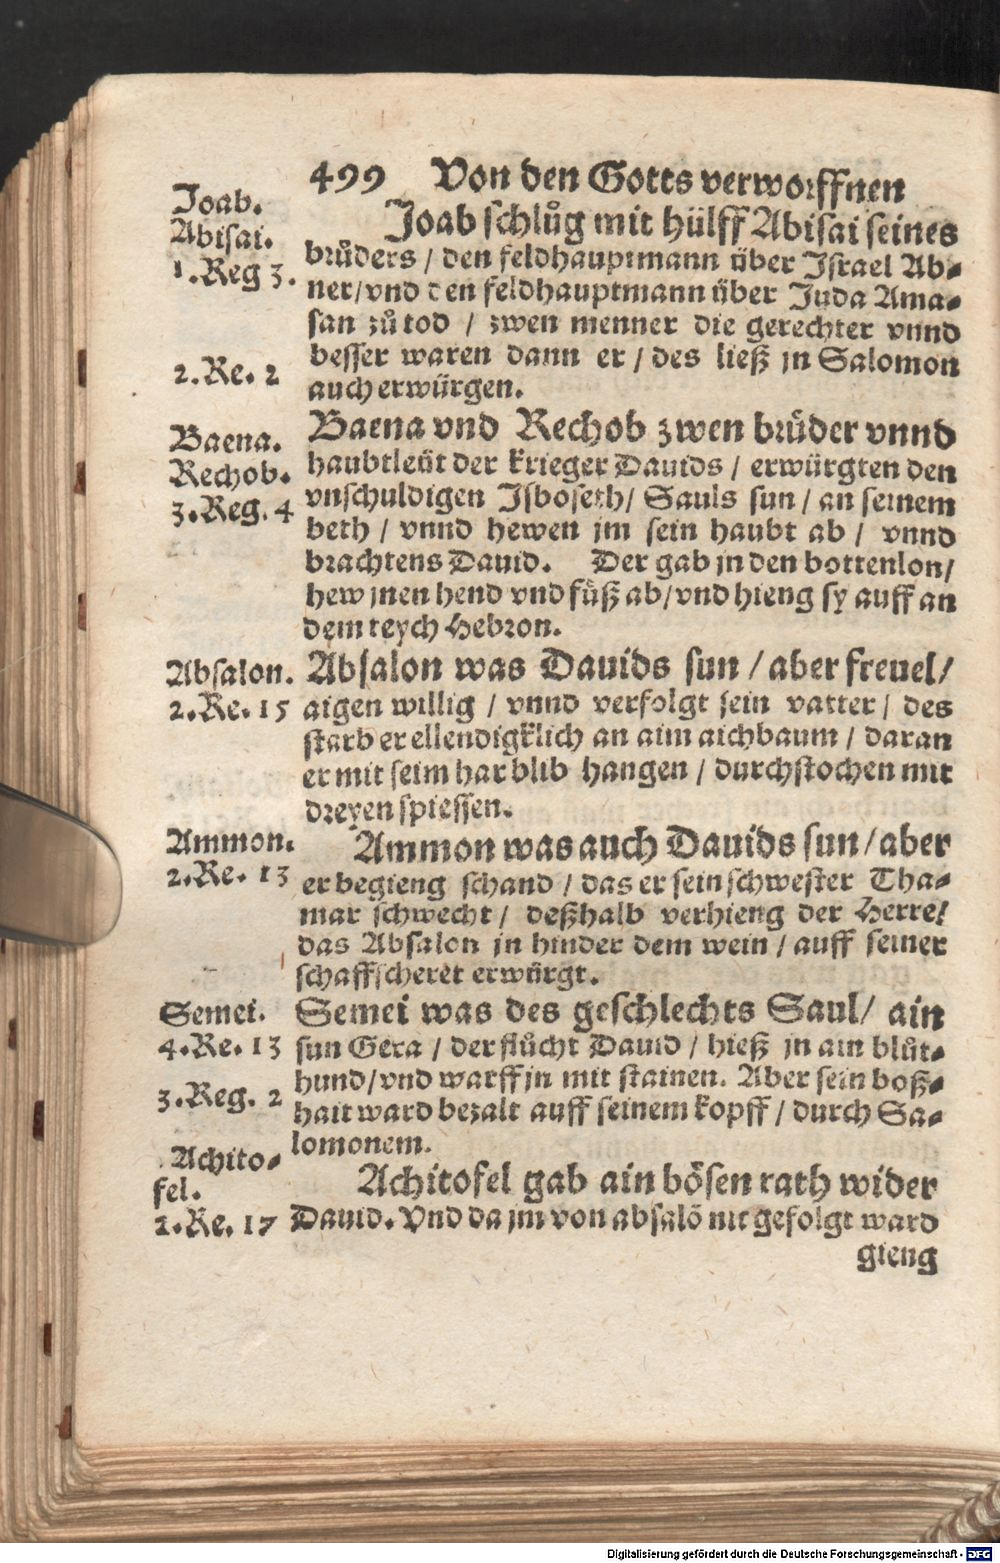 499 Von den Gotts verworffnen
Joab.
Abisai.
1.Reg 3.
2.Re. 2
Joab schlůg mit hülff Abisai seines
brůders / den feldhauptmann über Israel Ab-
ner/vnd den feldhauptmann über Juda Ama-
san zů tod / zwen menner die gerechter vnnd
besser waren dann er / des ließ jn Salomon
auch erwürgen.
Baena.
Rechob.
3.Reg. 4
Baena vnd Rechob zwen brůder vnnd
haubtleüt der krieger Dauids / erwürgten den
vnschuldigen Isboseth/ Sauls sun / an seinem
beth / vnnd hewen jm sein haubt ab / vnnd
brachtens Dauid. Der gab jn den bottenlon/
hew jnen hend vnd fůß ab/vnd hieng sy auff an
dem teych Hebron.
Absalon.
2.Re. 15
Absalon was Dauids sun / aber freuel/
aigen willig / vnnd verfolgt sein vatter / des
starb er ellendigklich an aim aichbaum / daran
er mit seim har blib hangen / durchstochen mit
dreyen spiessen.
Ammon.
2.Re. 13
Ammon was auch Dauids sun / aber
er begieng schand / das er sein schwester Tha-
mar schwecht / deßhalb verhieng der Herre/
das Absalon jn hinder dem wein / auff seiner
schaffscheret erwürgt.
Semei.
4.Re. 13
3.Reg. 2
Semei was des geschlechts Saul/ ain
sun Gera / der flůcht Dauid / hieß jn ain blůt-
hund/vnd warff jn mit stainen. Aber sein boß-
hait ward bezalt auff seinem kopff / durch Sa-
lomonem.
Achito-
fel.
2.Re. 17
Achitofel gab ain bösen rath wider
Dauid. Vnd da jm von absalō nit gefolgt ward
gieng
Digitalisierung gefördert durch die Deutsche Forschungsgemeinschaft - DFG